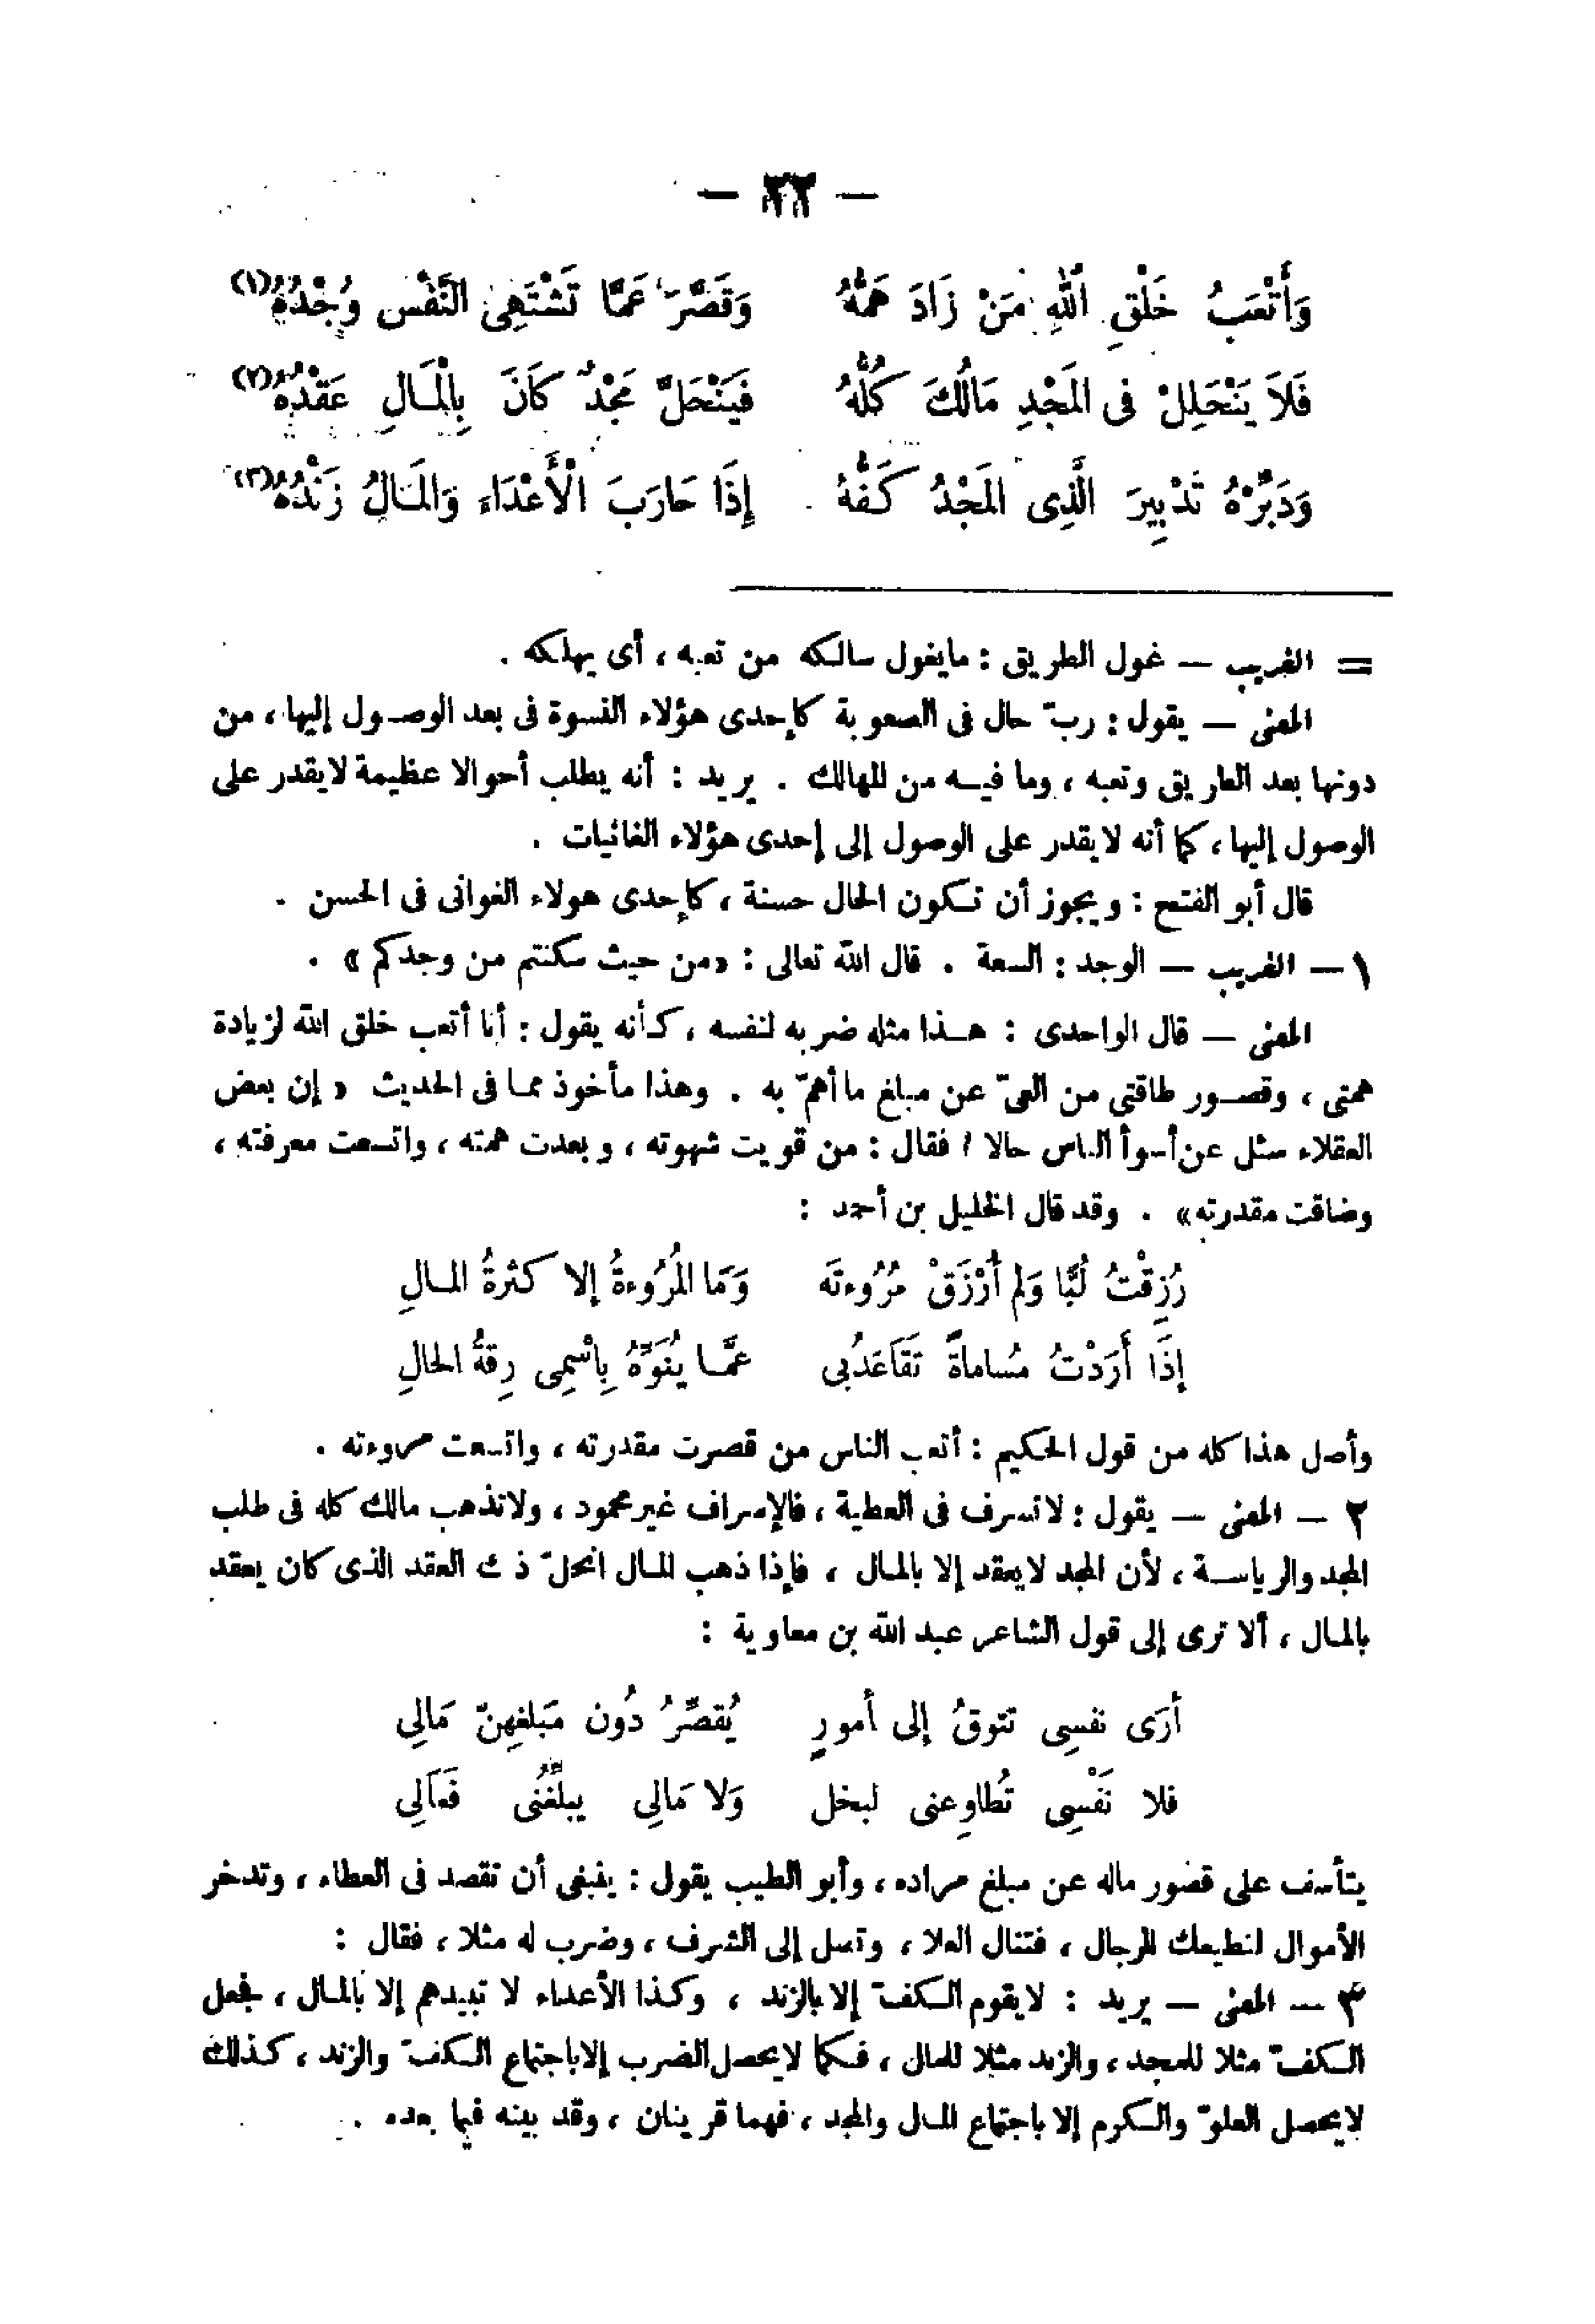 — ٢٢ —
وَأَتْعَبُ خَلْقِ اللهِ مَنْ زَادَ هَمُّهُ    وَقَصَّرَ عَمَّا تَشْتَهِى النَّفْس وُجْدُهُ(١)
فَلاَ يَنْحَلِلْ فى المَجْدِ مَالُكَ كُلُّهُ    فَيَنْحَلَّ مَجْدٌ كَانَ بِالْمَـالِ عَقْدُهُ(٢)
وَدَبِّرْهُ تَدْبِيرَ الَّذِى المَجْدُ كَفُّهُ    إِذَا حَارَبَ الْأَعْدَاءَ وَالمَـالُ زَنْدُهُ(٣)
= الغريب — غول الطريق : مايغول سالكه من تعبه ، أى يهلكه .
المعنى — يقول : ربّ حال فى الصعوبة كإحدى هؤلاء النسوة فى بعد الوصـول إليها ، من
دونها بعد الطريق وتعبه ، وما فيـه من المهالك . يريد : أنه يطلب أحوالا عظيمة لايقدر على
الوصول إليها ، كما أنه لايقدر على الوصول إلى إحدى هؤلاء الغانيات .
قال أبو الفتح : ويجوز أن تـكون الحال حسنة ، كإحدى هولاء الغوانى فى الحسن .
١ — الغريب — الوجد : السعة . قال الله تعالى : «من حيث سكنتم من وجدكم» .
المعنى — قال الواحدى : هـذا مثله ضربه لنفسه ، كـأنه يقول : أنا أتعب خلق الله لزيادة
همتى ، وقصـور طاقتى من الغىّ عن مبلغ ما أهمّ به . وهذا مأخوذ ممـا فى الحديث « إن بعض
العقلاء سئل عن أسوأ الناس حالا ؟ فقال : من قويت شهوته ، وبعدت همته ، واتسعت معرفته ،
وضاقت مقدرته» . وقد قال الخليل بن أحمد :
رُزِقْتُ لُبًّا وَلم أُرْزَقْ مُرُوءتَه    وَمَا المُرُوءةُ إلا كثرةُ المـالِ
إذَا أَرَدْتُ مُساماةً تَقَاعَدُبى    عمَّـا يُنَوِّهُ بِاسْمِى رِقةُ الحالِ
وأصل هذا كله من قول الحكيم : أتعب الناس من قصرت مقدرته ، واتسعت مروءته .
٢ — المعنى — يقول : لاتسرف فى العطية ، فالإسراف غير محمود ، ولاتذهب مالك كله فى طلب
المجد والرياسـة ، لأن المجد لايعقد إلا بالمـال ، فإذا ذهب المـال انحلّ ذ ك العقد الذى كان يعقد
بالمـال ، ألا ترى إلى قول الشاعر عبد الله بن معاوية :
أرَى نفسِى تتوقُ إلى أمورٍ    يُقصِّرُ دُون مَبلغِهِنّ مَالِى
فلا نَفْسِى تُطاوِعنى لبخل    وَلا مَالِى يبلِّغُنى فَعَالِى
يتأسف على قصور ماله عن مبلغ مراده ، وأبو الطيب يقول : ينبغى أن تقصد فى العطاء ، وتدخر
الأموال لتطيعك الرجال ، فتنال العلا ، وتصل إلى الشرف ، وضرب له مثلا ، فقال :
٣ — المعنى — يريد : لايقوم الـكفّ إلا بالزند ، وكذا الأعداء لا تبيدهم إلا بالمـال ، فجعل
الـكفّ مثلا للمجد ، والزند مثلا للمال ، فـكما لايحصل الضرب إلا باجتماع الـكفّ والزند ، كـذلك
لايحصل العلوّ والـكرم إلا باجتماع المـال والمجد ، فهما قرينان ، وقد بينه فيما بعده .